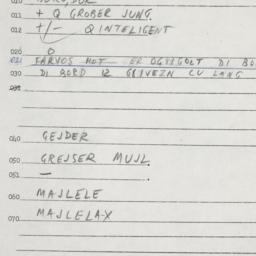 011 + Q GROBER JUNG.
012 +/- Q INTELIGENT
020 O
021 FARVOS HOT ER OPGEGOLT DI BO
030 DI BORD IZ GEVEZN CU LANG
040 GEJDER
050 GREJSER MUJL.
051 —
060 MAJLELE
070 MAJLELAX